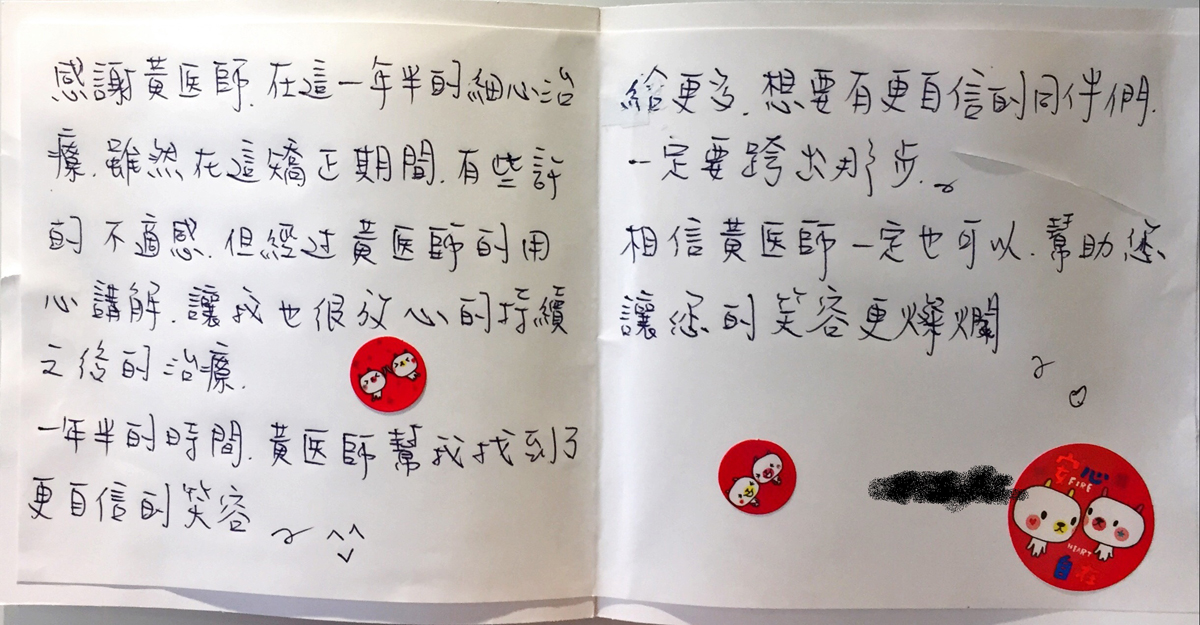 感謝黃医師.在這一年半的細心治
療.雖然在這矯正期間.有些許
的不適感.但經过黃医師的用
心講解.讓我也很放心的持續
之後的治療.
一年半的時間.黃医師幫我找到了
更自信的笑容~ ^^
給更多.想要有更自信的同伴們.
一定要跨出那步.~
相信黃医師一定也可以.幫助您
讓您的笑容更燦爛~
安心
FIRE
HEART
自在